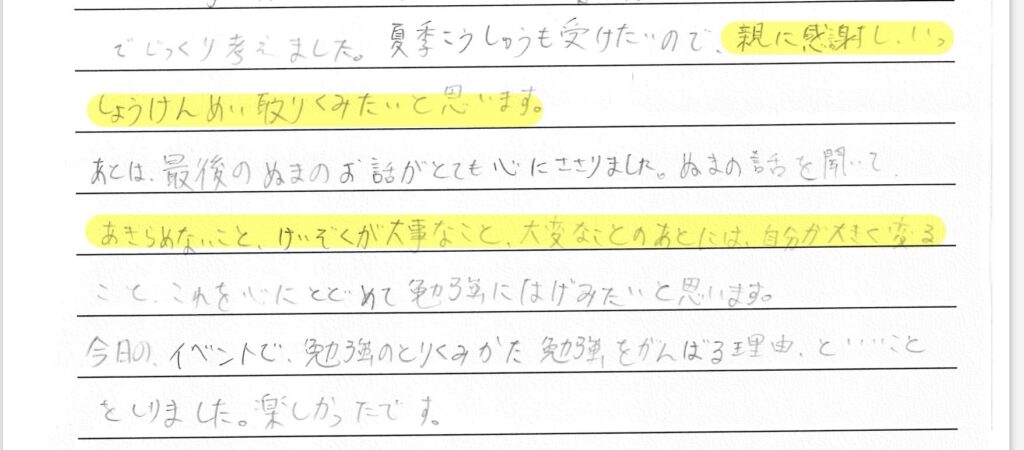 でじっくり考えました。夏季こうしゅうも受けたいので、親に感謝し、いっ
しょうけんめい取りくみたいと思います。
あとは、最後のぬまのお話がとても心にささりました。ぬまの話を聞いて、
あきらめないこと、けいぞくが大事なこと、大変なことのあとには、自分が大きく変る
こと、これを心にとどめて勉強にはげみたいと思います。
今日の、イベントで、勉強のとりくみかた勉強をがんばる理由、といいこと
をしりました。楽しかったです。